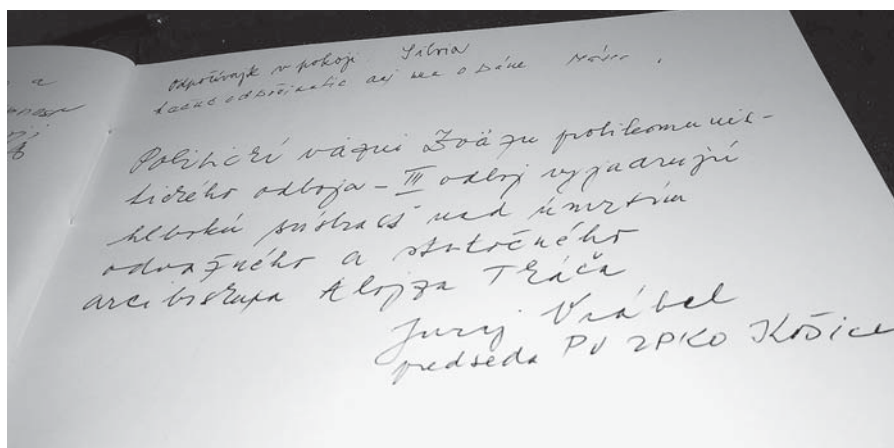 odpočívajte v pokoji Silvia
aj
Politickí väzni Zväzu protikomunis-
tického odboja – III odboj vyjadrujú
hlbokú sústrasť nad úmrtím
odvážného a statočného
arcibiskupa Alojza Tkáča
Juraj Vrábel
predseda PV ZPKO Košice